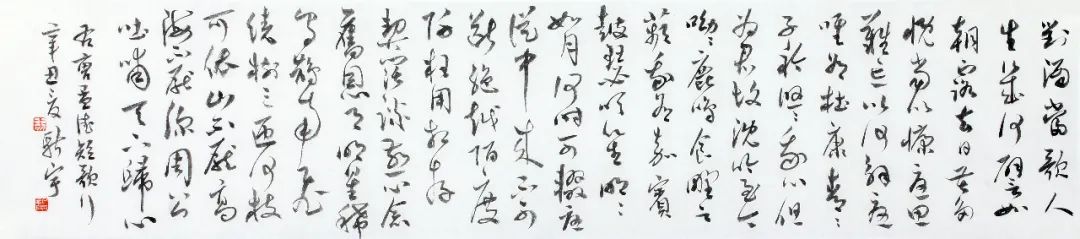 對酒當歌人
生幾何譬如
朝露去日苦多
慨當以慷憂思
難忘以何解憂
唯有杜康青〻
子衿悠〻我心但
為君故沈吟至今
呦〻鹿鳴食野之
蘋我有嘉賓
鼓瑟吹笙明〻
如月何時可掇憂
從中來不可
斷絕越陌度
阡枉用相存
契闊談讌心念
舊恩月明星稀
烏鵲南飛
繞樹三匝何枝
可依山不厭高
海不厭深周公
吐哺天下歸心
右曹孟德短歌行
辛丑夏